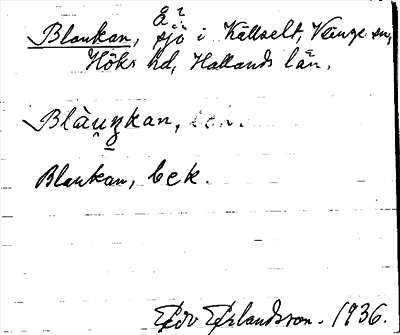 Å?
Blankan, sjö i Källselt, Veinge sn,
Höks hd, Hallands län.
Blàu̯ŋkan, bek.
Blankan, bek.
Edv Erlandsson. 1936.